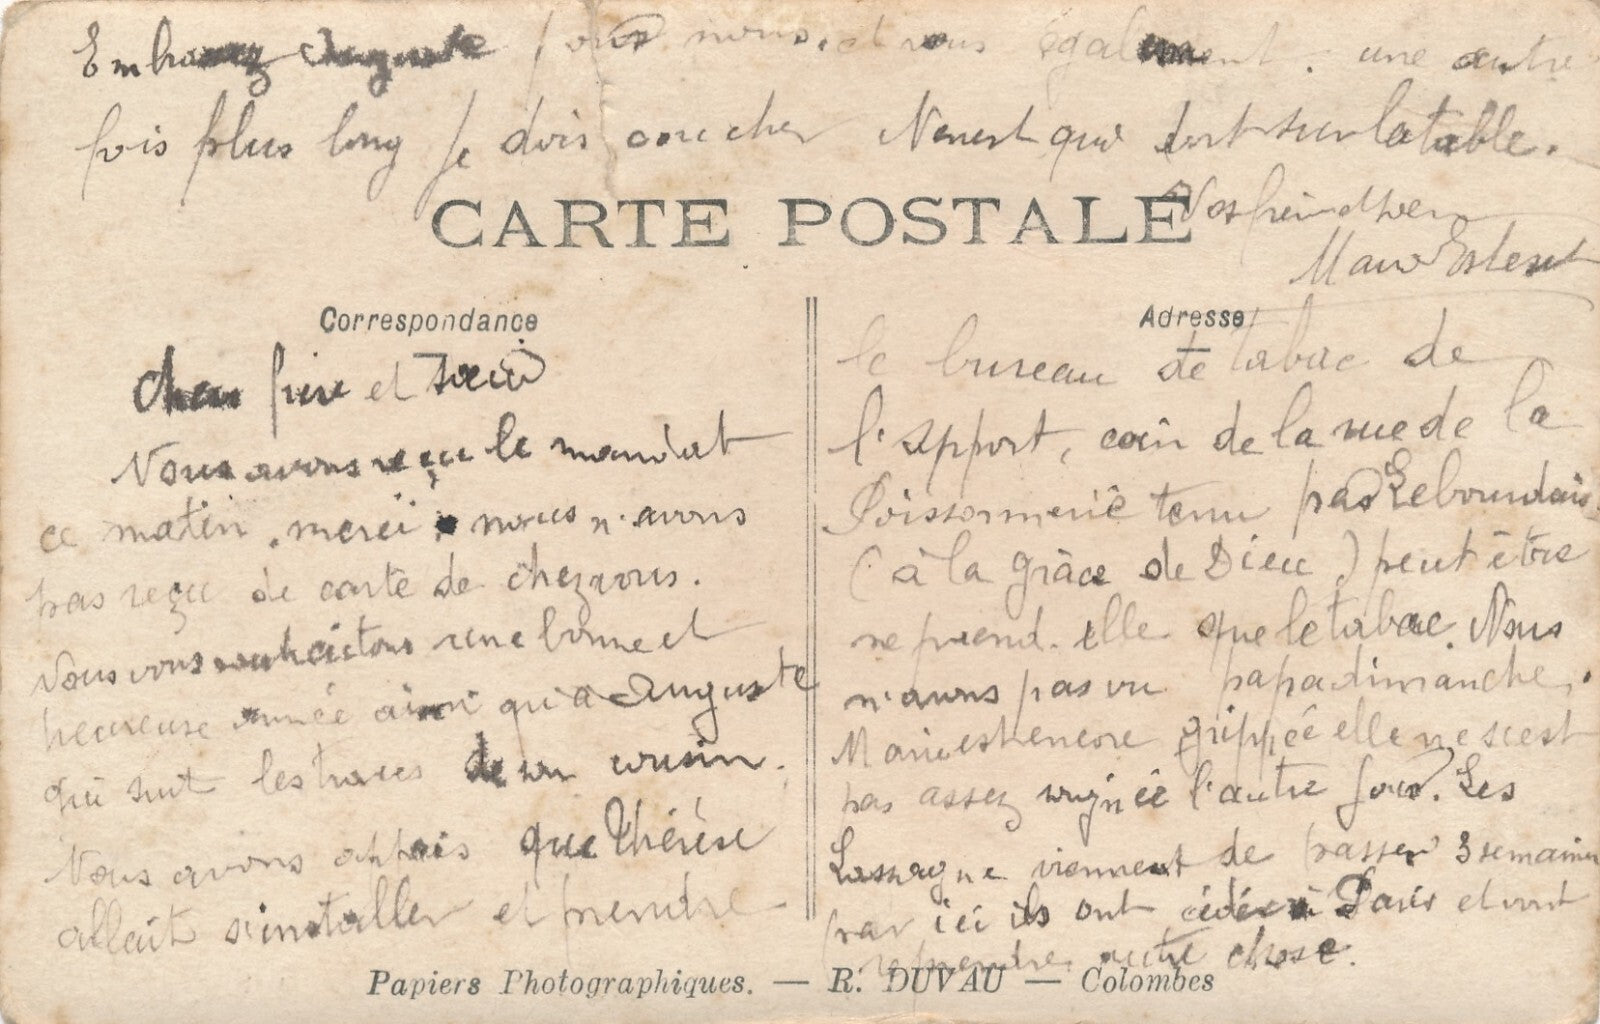 Embrassez Auguste pour nous, et vous également. une autre
fois plus long je dois coucher Nenest qui dort sur la table.
CARTE POSTALE
Vos frère
Correspondance
Cher frère et soeur
Nous avons reçu le mandat
ce matin, merci, nous n'avons
pas reçu de carte de chez vous.
Nous vous souhaitons une bonne et
heureuse année ainsi qu'a Auguste
qui suit les traces de son cousin.
Nous avons appris que Thérèse
allait s'installer et prendre
Adresse
le bureau de tabac de
l'apport, coin de la rue de la
Poissonnerie tenu par Lebourdais
(à la grâce de Dieu) peut être
ne prend-elle que le tabac. Nous
n'avons pas vu papa dimanche.
Marie est encore grippée elle ne s'est
pas assez soignée l'autre jour. Les
Lassagne viennent de passer 3 semaines
par ici ils ont cédé à Paris et vont
reprendre autre chose.
Papiers Photographiques. — R. DUVAU — Colombes